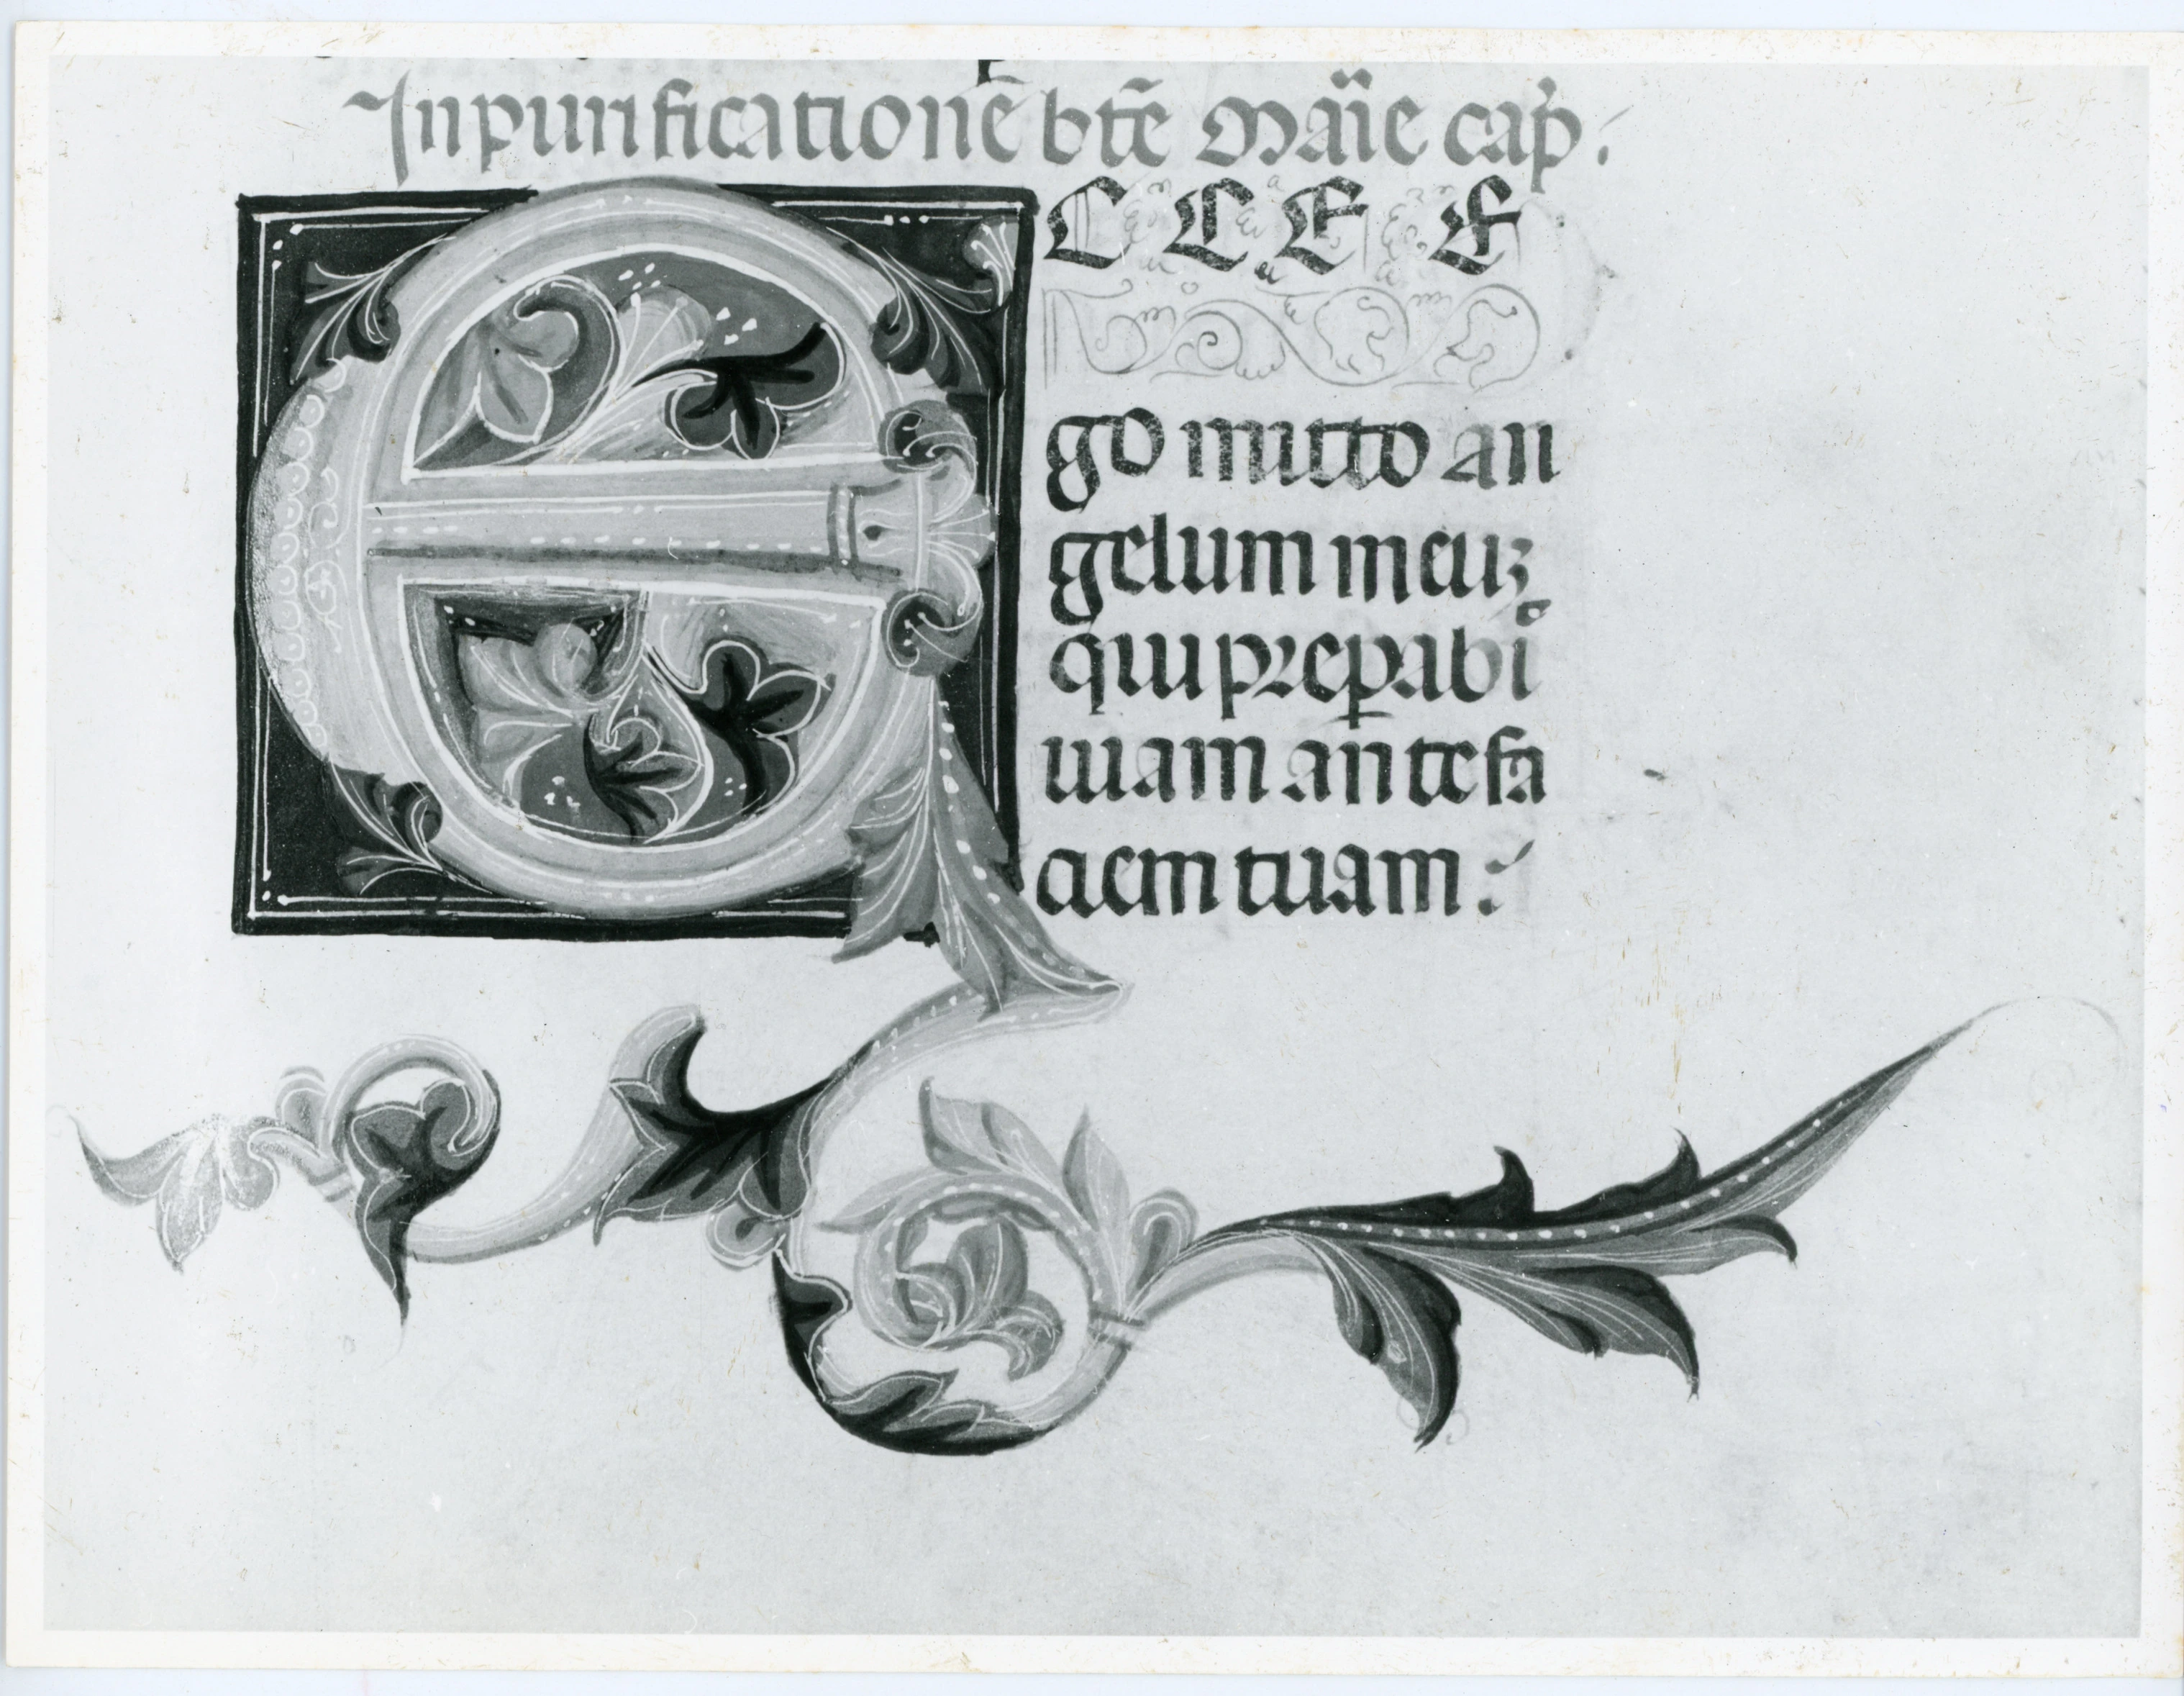 In purificatione bt̃e Marı̈e cap̉.
E C C E E
go mitto an
gelum meuʒ
qui prep̱abi
tuam ante fa
ciem tuam :